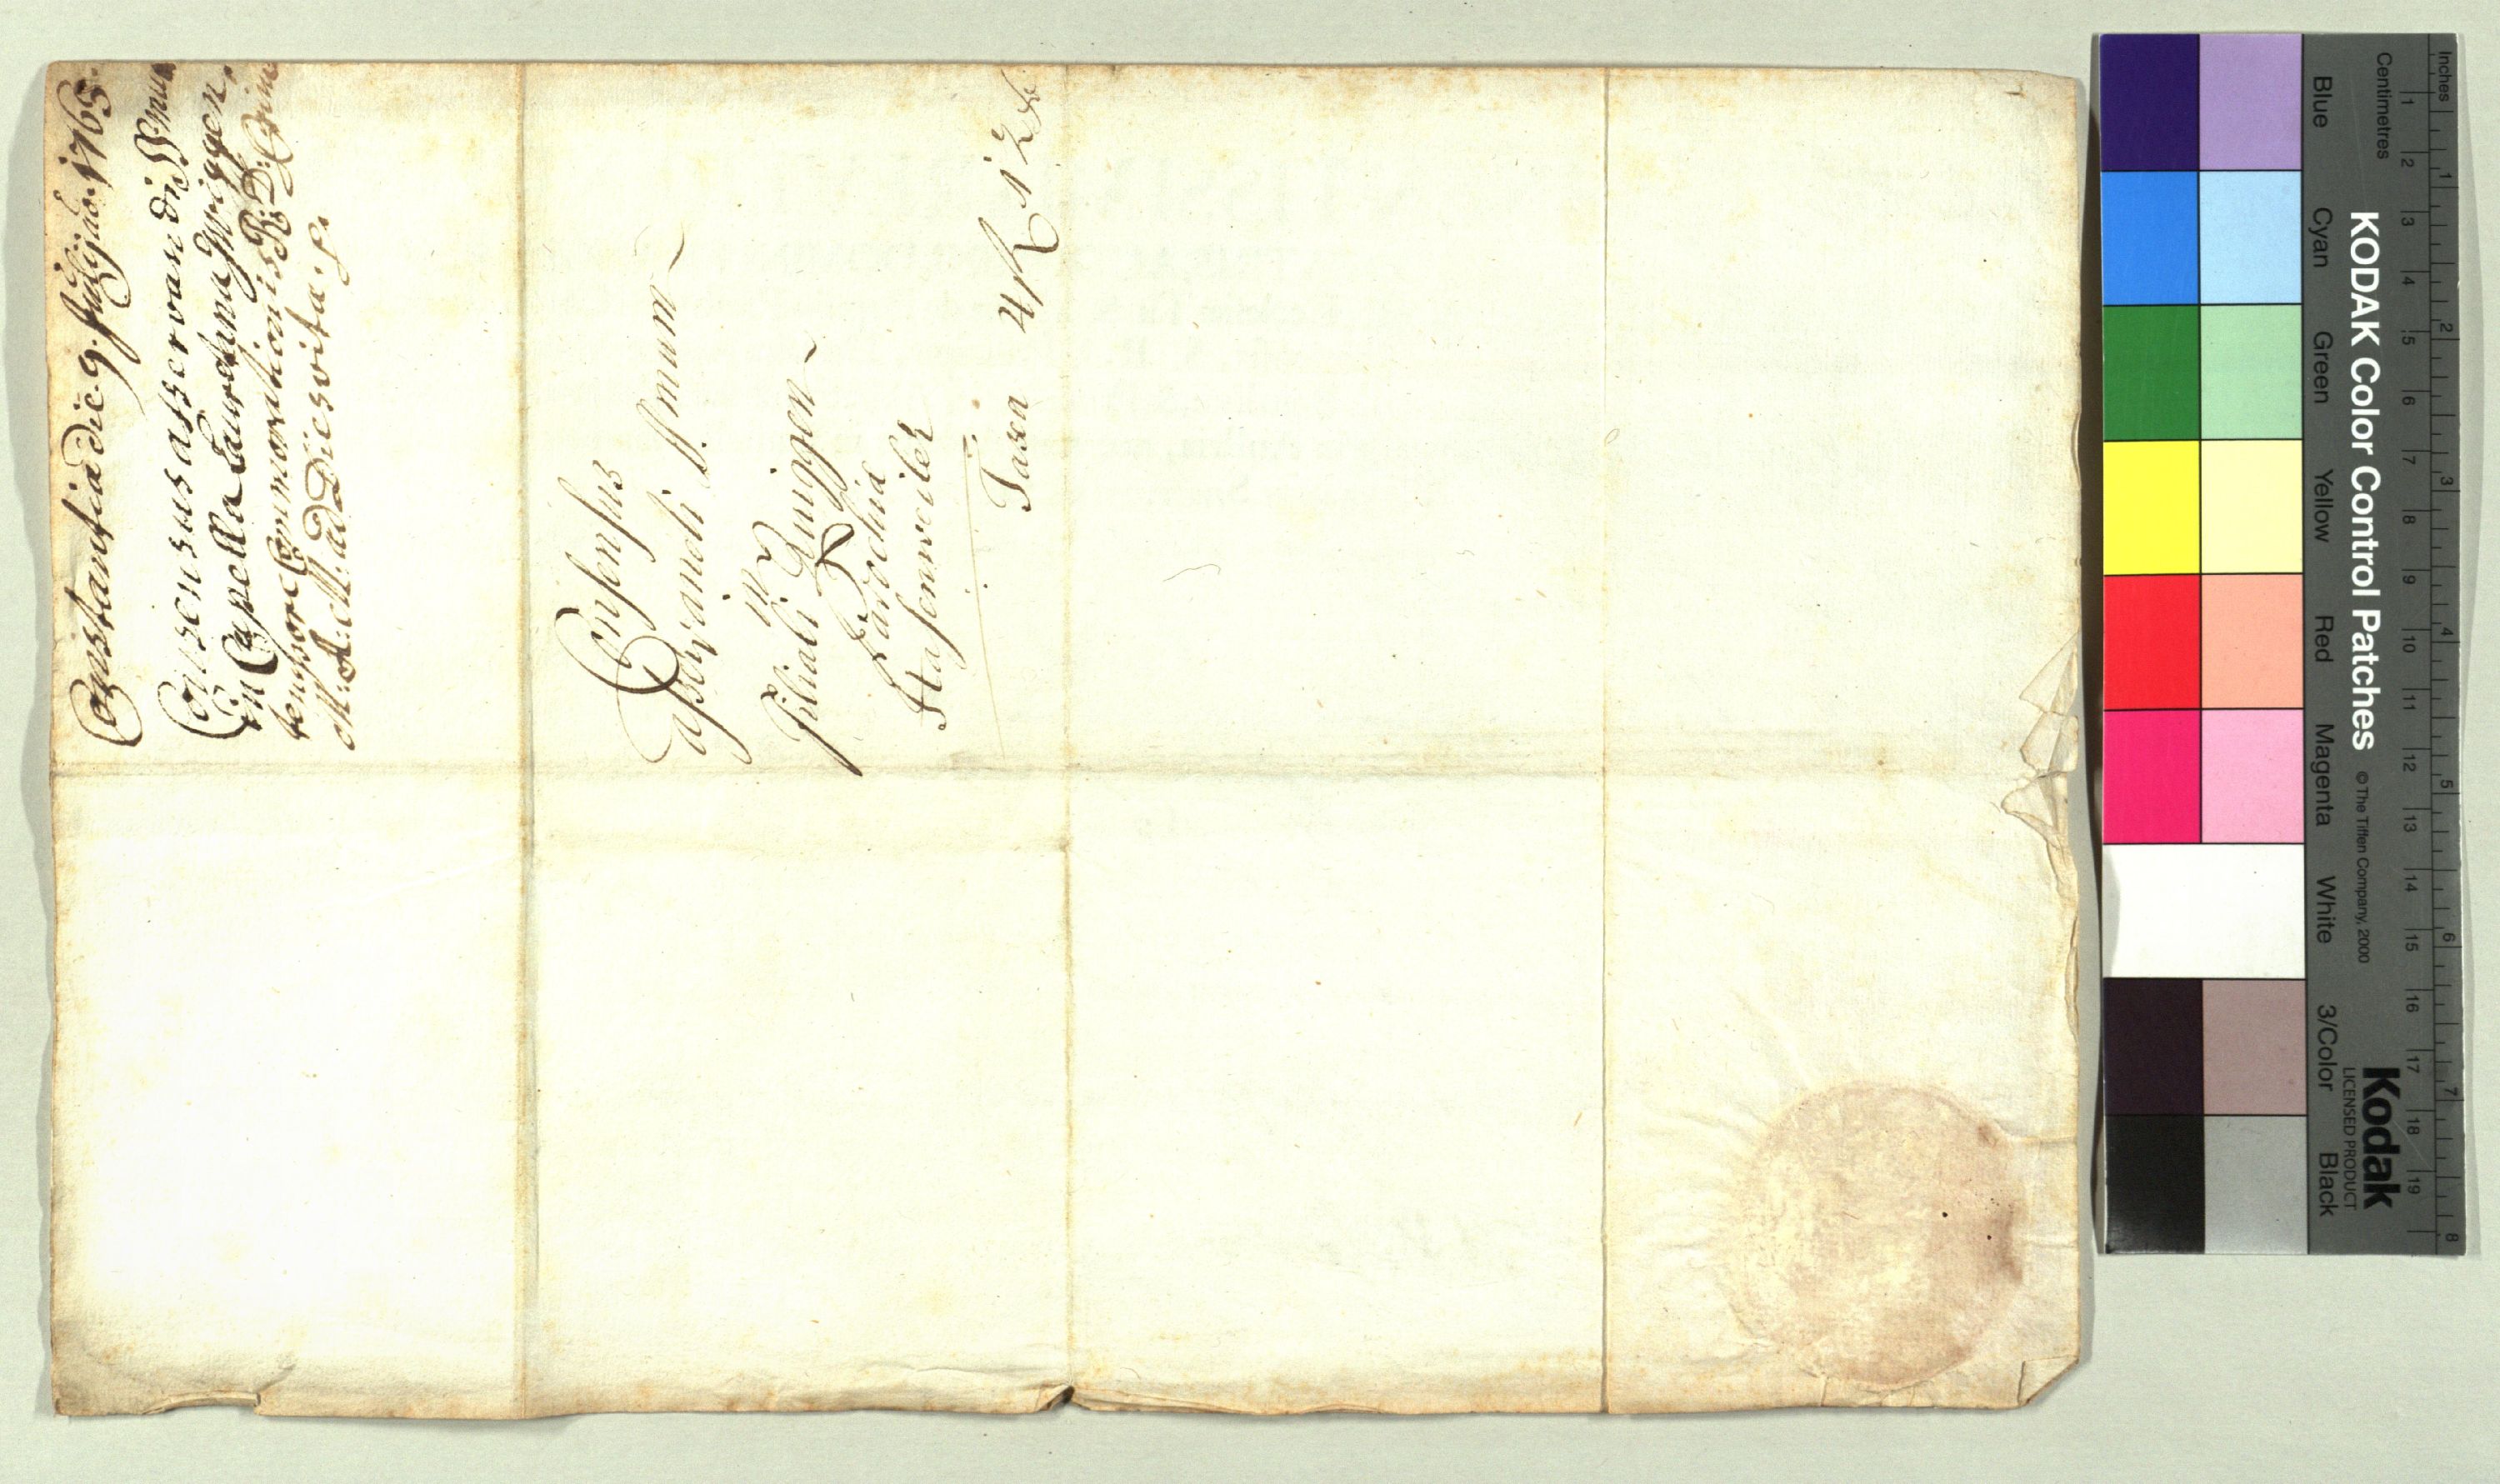 Constantia die 9. Julij ao. 1765.
Consensus asservandi Smum
in Capella Lauretana Zwiggen,
tempore Commorationis R: D:
M: A: ad Dies vitae.
Consensus
asservandi Smum
in
Filiali Zwiggen
Parochia
Hasenweiler
Taxa 4 R 12
KODAK Color Control Patches
© The Tiffen Company, 2000
Kodak
LICENSED PRODUCT
Blue Cyan Green Yellow Red Magenta White 3/Color Black
Centimetres 1 2 3 4 5 6 7 8 9 10 11 12 13 14 15 16 17 18 19
Inches 1 2 3 4 5 6 7 8